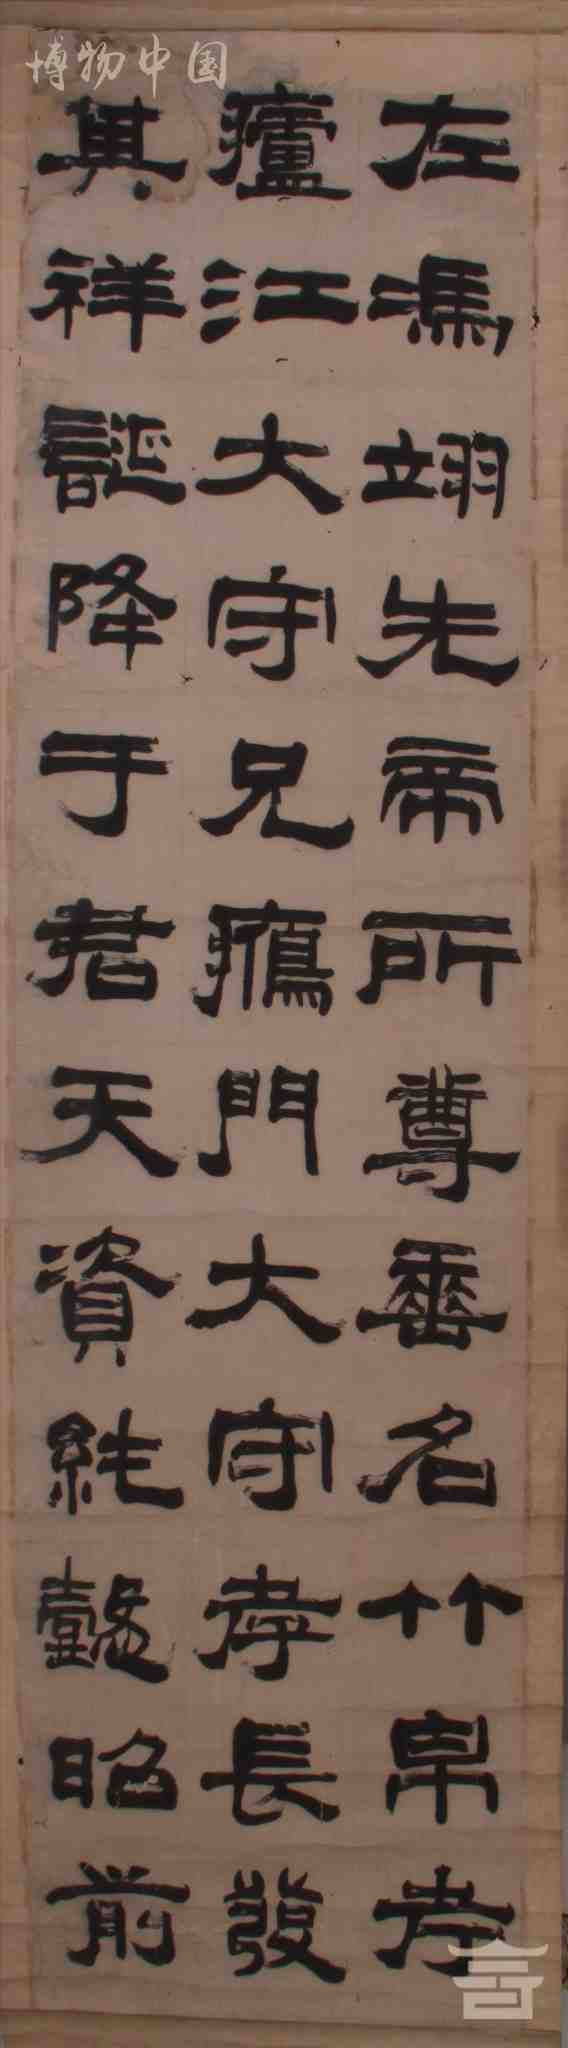 博物中国
左馮翊先帝所尊垂名竹帛孝
廬江大守兄鴈門大守孝長發
其祥誕降于君天資純懿昭前